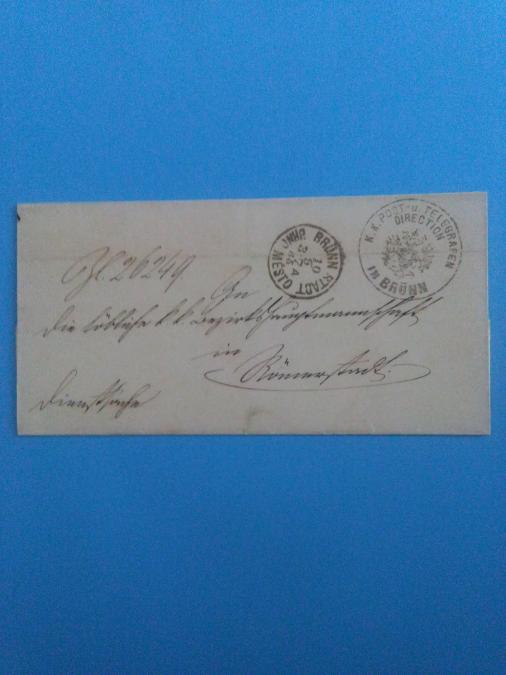 K.K. POST- u. TELEGRAFEN
DIRECTION
in BRÜNN
BRÜNN STADT
BRNO MĚSTO
10
5
Zl 26249
An
die löbliche k. k. Bezirkshauptmannschaft
in
Römerstadt.
Dienstsache